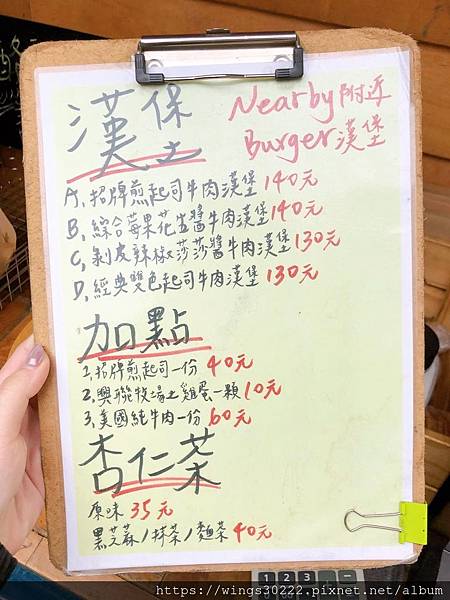 漢堡
Nearby附近
Burger漢堡
A、招牌煎起司牛肉漢堡 140元
B、綜合莓果花生醬牛肉漢堡 140元
C、剝皮辣椒莎莎醬牛肉漢堡 130元
D、經典雙色起司牛肉漢堡 130元
加點
1、招牌煎起司一份 40元
2、興聯牧場土雞蛋一顆 10元
3、美國純牛肉一份 60元
杏仁茶
原味 35元
黑芝麻/抹茶/麵茶 40元
https://wings30222.pixnet.net/album